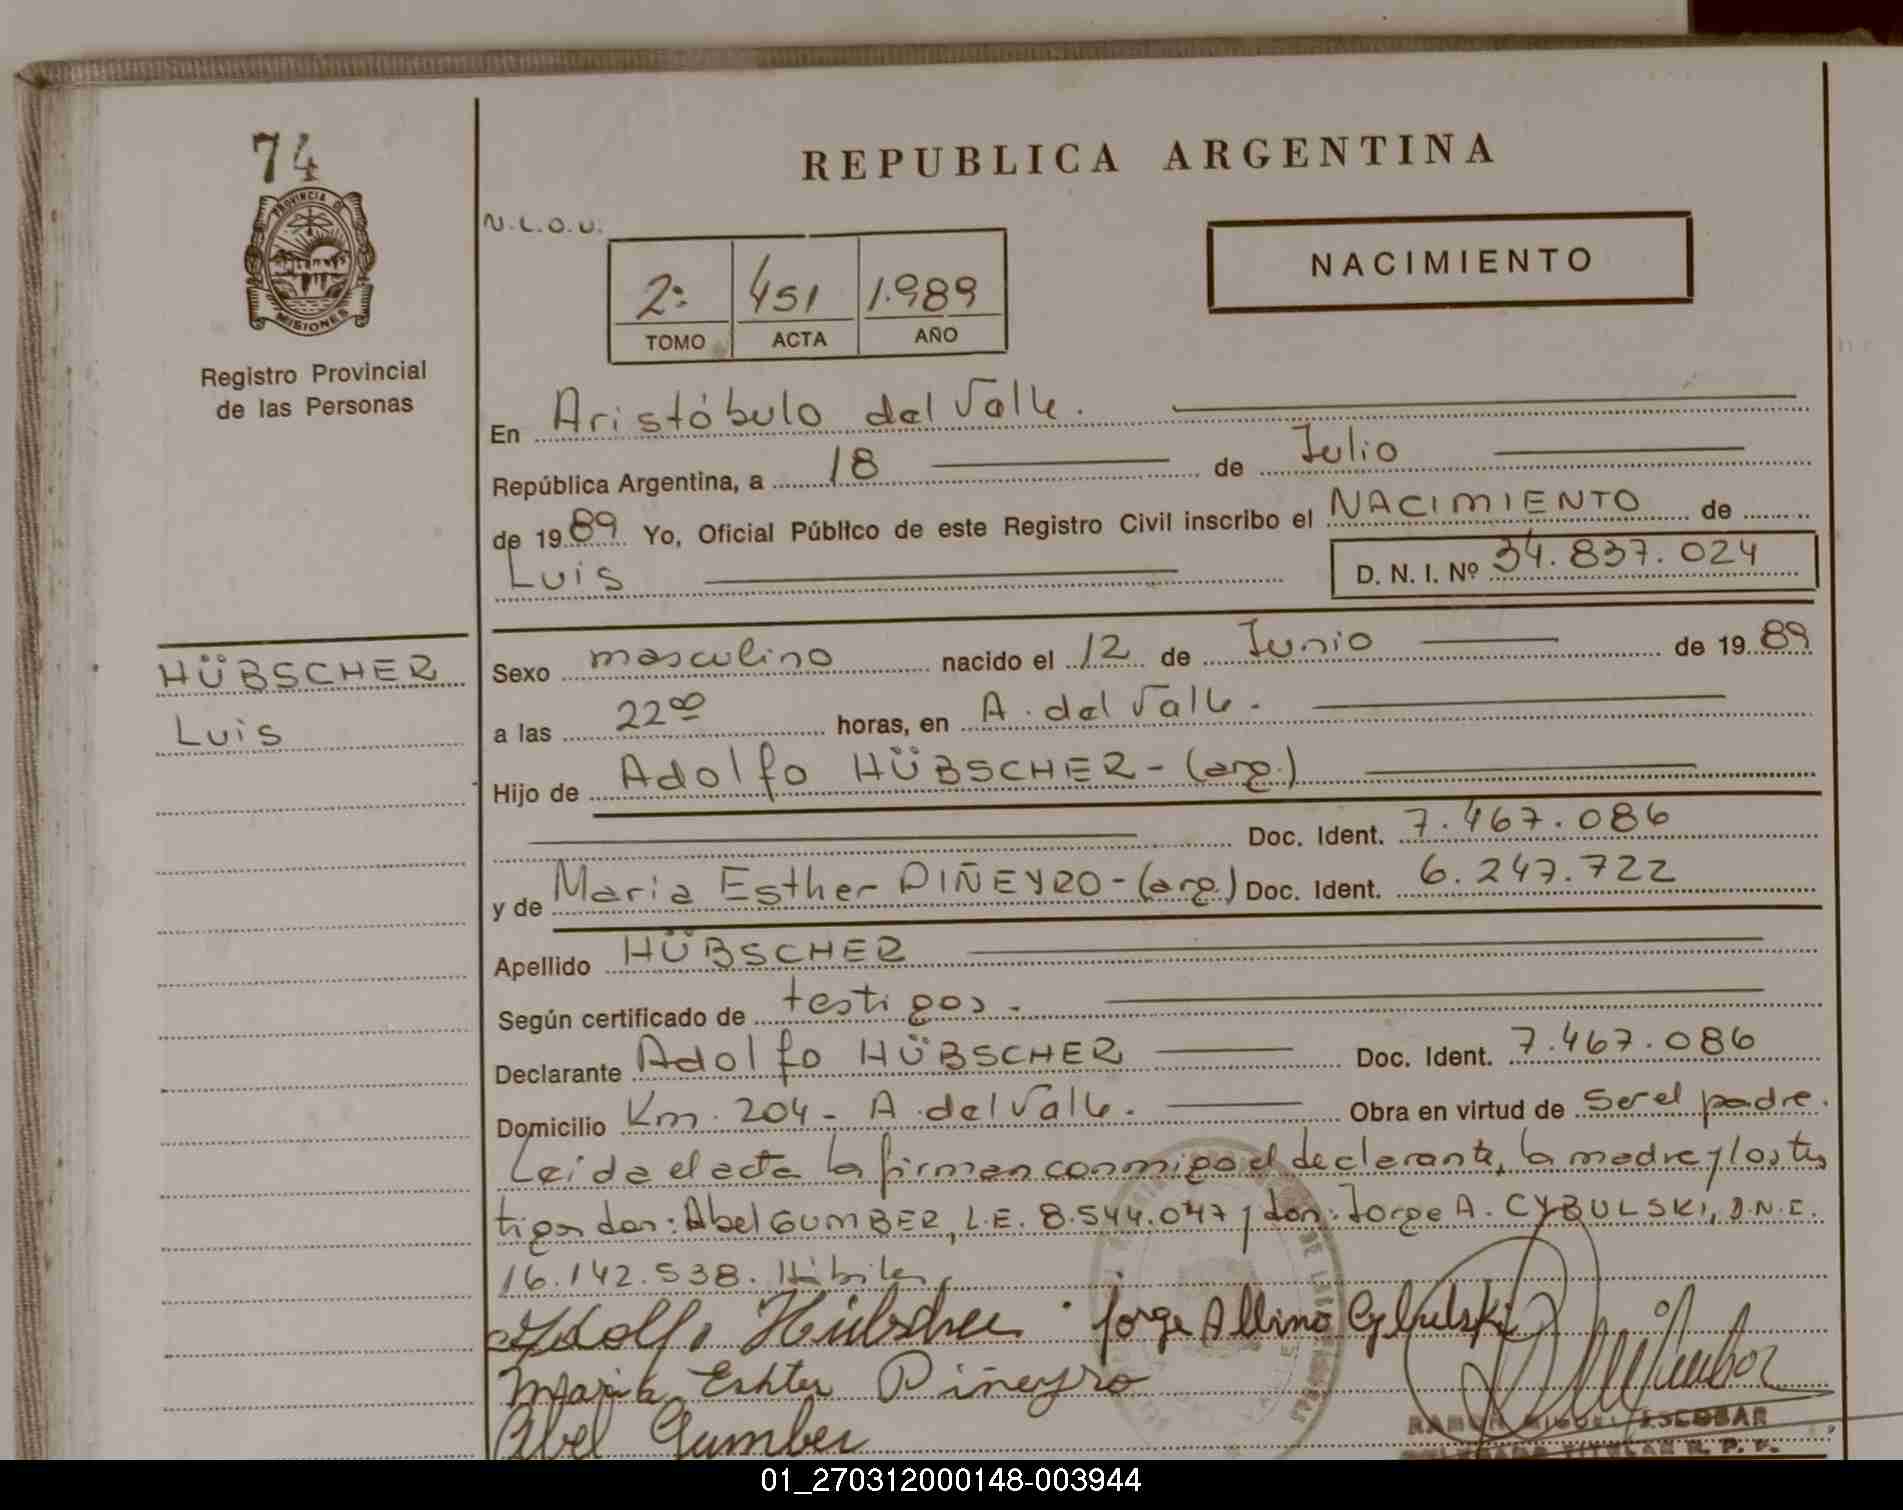 74
PROVINCIA DE
MISIONES
Registro Provincial
de las Personas
HÜBSCHER
Luis
REPUBLICA ARGENTINA
N.L.O.U.
NACIMIENTO
2º 451 1.989
TOMO ACTA AÑO
En Aristóbulo del Valle.
República Argentina, a 18 de Julio
de 1989 Yo, Oficial Público de este Registro Civil inscribo el NACIMIENTO de
Luis D. N. I. Nº 34.837.024
Sexo masculino nacido el 12 de Junio de 1989
a las 22⁰⁰ horas, en A. del Valle.
Hijo de Adolfo HÜBSCHER - (arg.)
Doc. Ident. 7.467.086
y de Maria Esther PIÑEYRO - (arg.) Doc. Ident. 6.247.722
Apellido HÜBSCHER
Según certificado de testigos.
Declarante Adolfo HÜBSCHER Doc. Ident. 7.467.086
Domicilio Km. 204 - A. del Valle. Obra en virtud de ser el padre.
Leida el acta la firman conmigo el declarante, la madre y los tes
tigos don: Abel GUMBER, L.E. 8.544.047 y don: Jorge A. CYBULSKI, D.N.I.
16.142.538. Hábiles
Adolfo Hübscher Jorge Albino Cybulski
Maria Eshter Piñeyro
Abel Gumber
RAMON MIGUEL ESCOBAR
DELEGADO TITULAR R. P. P.
01_270312000148-003944